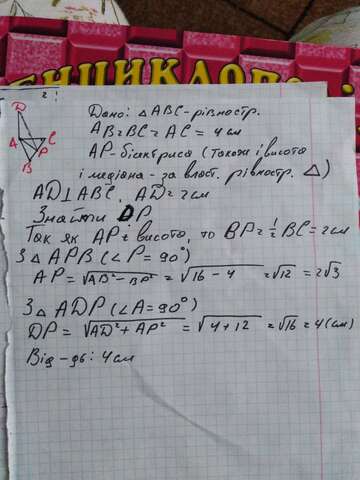 ЕНЦИКЛОП
2:
D
A
C
P
B
Дано: △ABC-рівностр.
AB=BC=AC = 4 см
AP-бісектриса (також і висота
і медіана - за власт. рівностр. △)
AD⊥ABC, AD=2см
Знайти DP
Так як AP і висота, то BP=½BC=2см
З △APB (∠P=90°)
AP = √AB²-BP² = √16-4 = √12 = 2√3
З △ADP (∠A=90°)
DP = √AD²+AP² = √4+12 = √16 = 4(см)
Від-дь: 4см